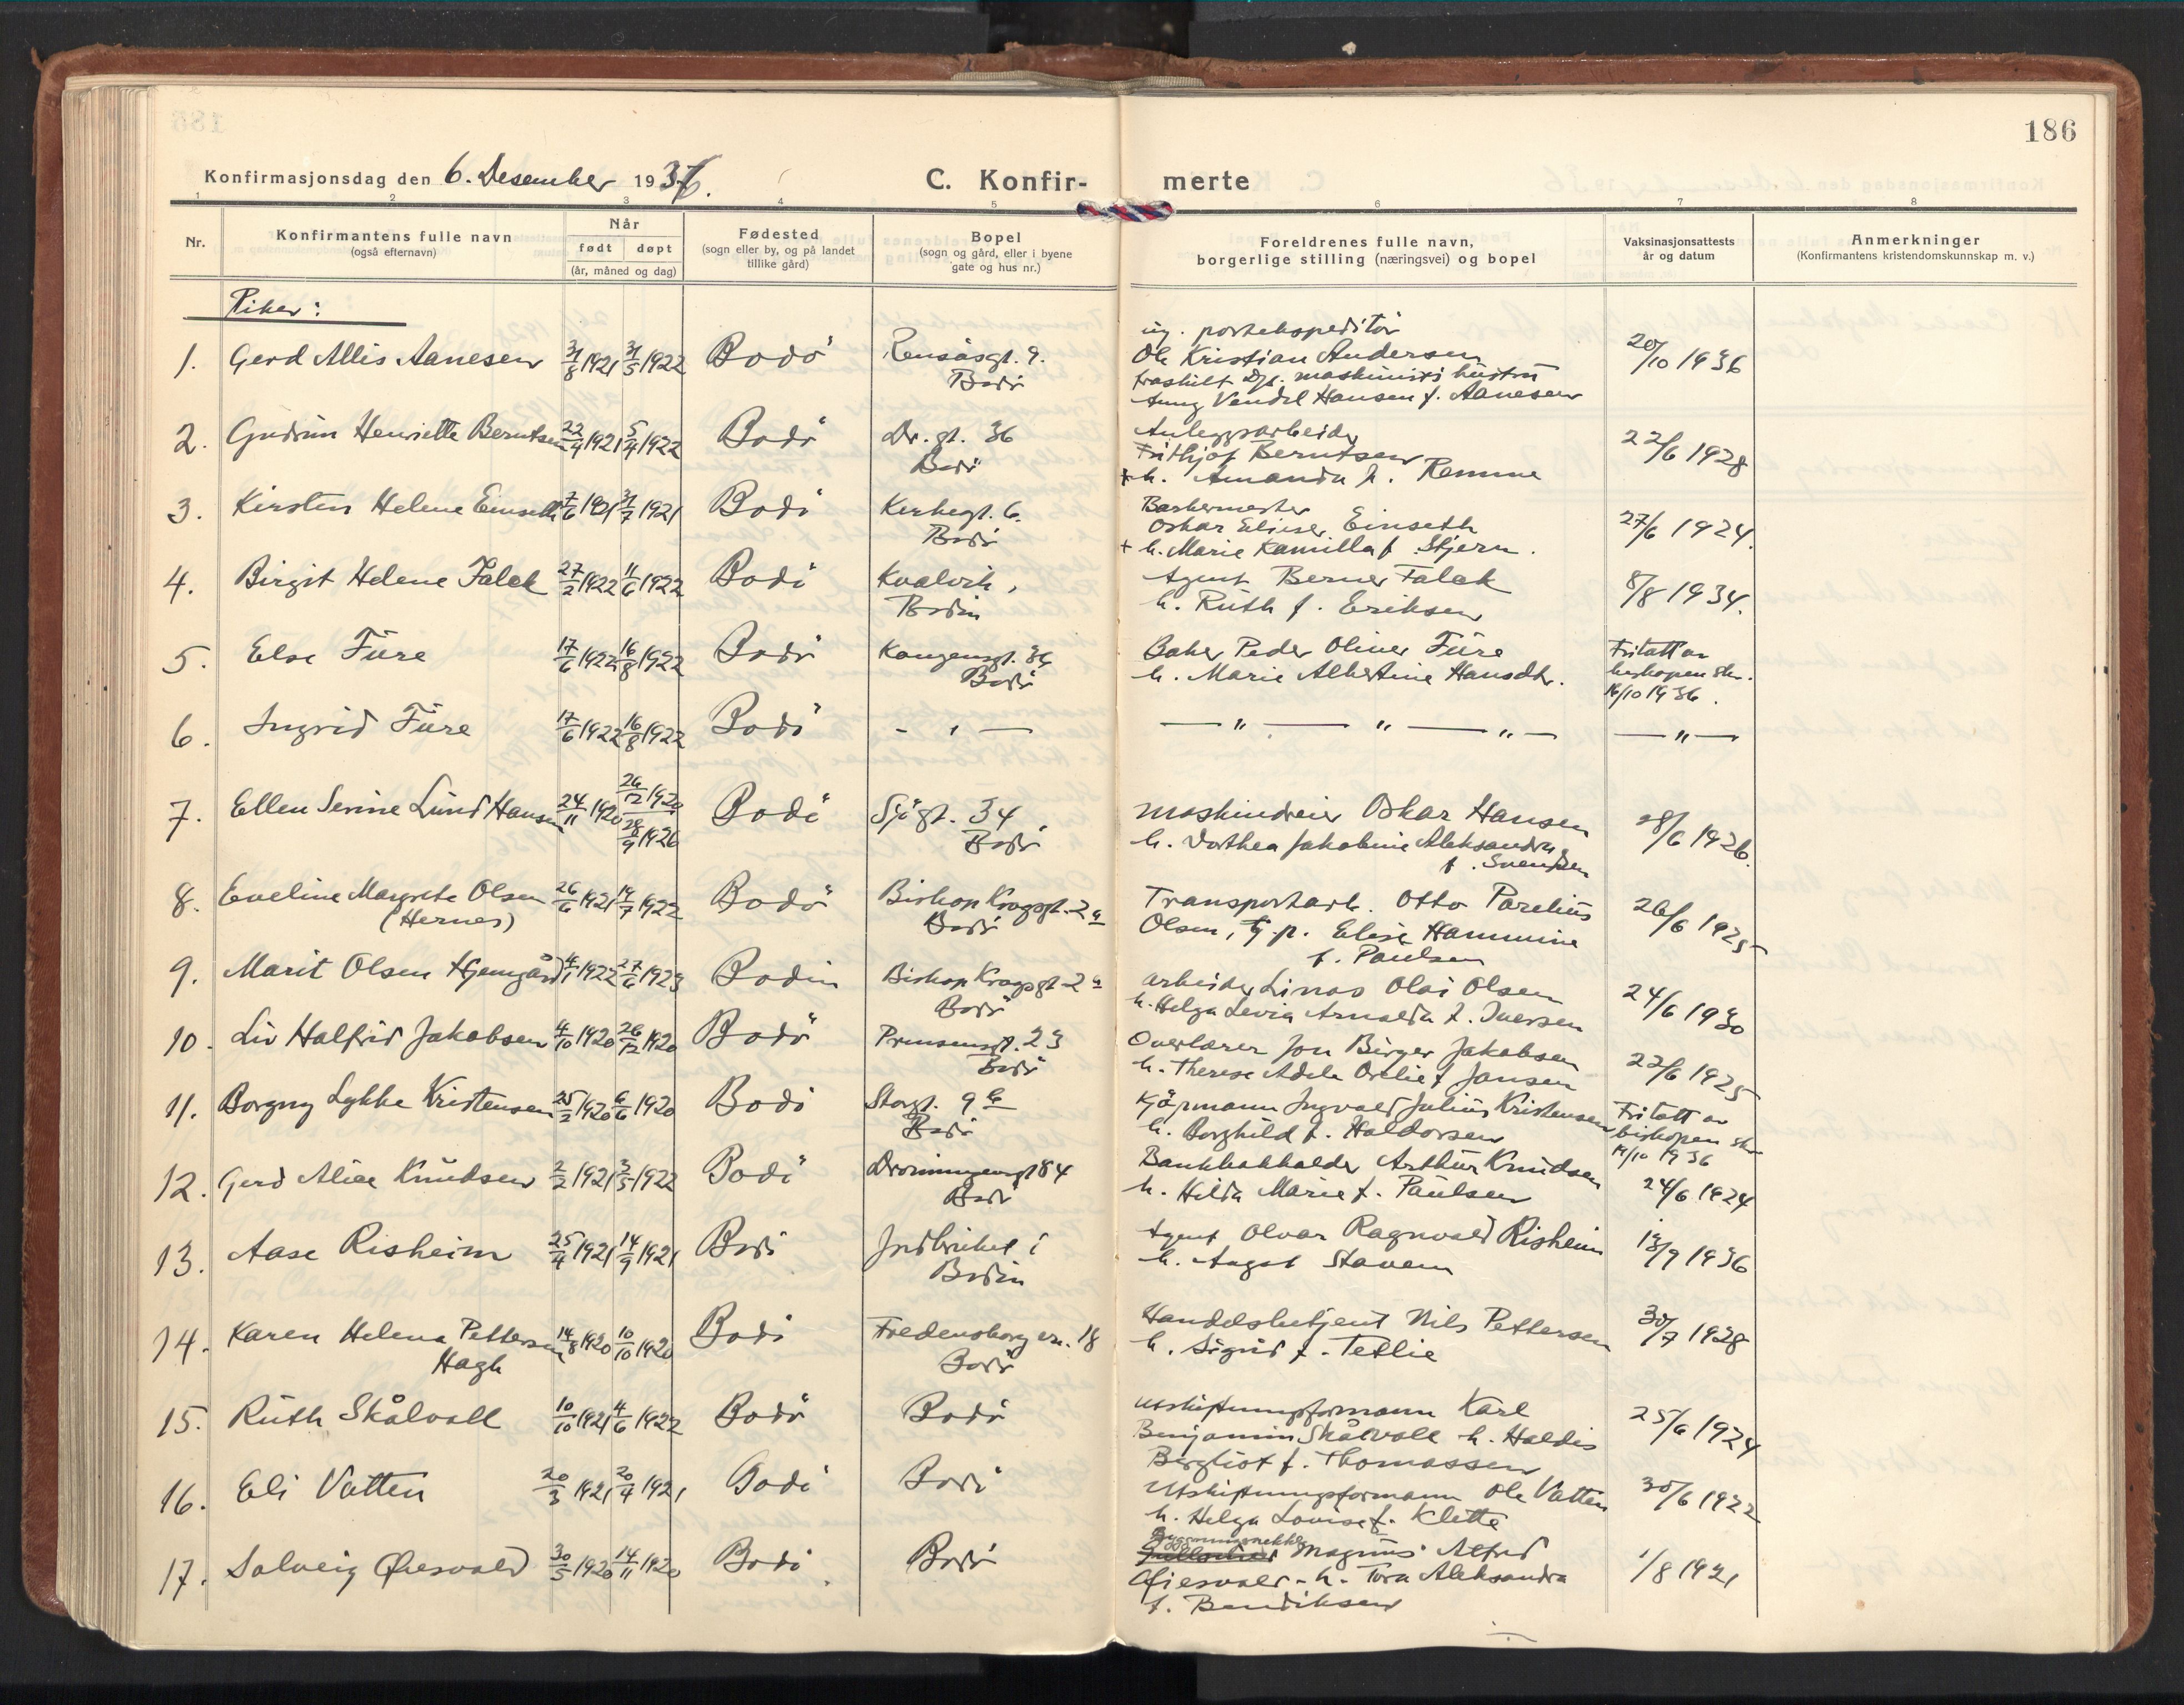 186
Konfirmasjonsdag den 6. Desember 1936.
C. Konfir-
merte
1 2 3 4 5 6 7 8
Nr.
Konfirmantens fulle navn
(også efternavn)
Når
født døpt
(år, måned og dag)
Fødested
(sogn eller by, og på landet
tillike gård)
Bopel
(sogn og gård, eller i byene
gate og hus nr.)
Foreldrenes fulle navn,
borgerlige stilling (næringsvei) og bopel
Vaksinasjonsattests
år og datum
Anmerkninger
(Konfirmantens kristendomskunnskap m. v.)
Piker:
1. Gerd Allis Aanesen 31/8 1921 31/5 1922 Bodö Rensåsgt. 9.
Bodö
ug. postekspeditör
Ole Kristian Andersen
fraskilt maskinists hustru
Vendel Hansen f. Aanesen
20/10 1936
2. Gudrun Henriette Berntsen 22/9 1921 5/4 1922 Bodö Dr. gt. 36
Bodö
Anleggsarbeider
Frithjof Berntsen
+ h. Amanda f. Remme
22/6 1928
3. Kirsten Helene Einseth 7/6 1921 31/7 1921 Bodö Kirkegt. 6.
Bodö
Barbermester
Oskar Elieser Einseth
+ h. Marie Kamilla f. Stjern.
27/6 1924.
4. Birgit Helene Falck 27/2 1922 11/6 1922 Bodö Kvalvik,
Bodin
Agent Berner Falck
h. Ruth f. Eriksen
8/8 1934.
5. Else Fure 17/6 1922 16/8 1922 Bodö Kongensgt. 36
Bodö
Baker Peder Oliver Fure
h. Marie Albertine Hansdtr.
Fritatt av
biskopen skr.
16/10 1936.
6. Ingrid Fure 17/6 1922 16/8 1922 Bodö - " —
— " — " — " —
— " —
7. Ellen Serine Lund Hansen 24/11 1920 26/12 1920
28/9 1926
Bodö Sjögt. 34
Bodö
Maskindreier Oskar Hansen
h. Dorthea Jakobine Aleksandra
f. Svendsen
28/6 1926.
8. Eveline Margrete Olsen
(Hernes)
26/6 1921 14/7 1922 Bodö Biskop Kragsgt. 2a
Bodö
Transportarb. Otto Parelius
Olsen, Elise Hammine
f. Paulsen
26/6 1925
9. Marit Olsen Hjemgård 4/1 1922 27/6 1923 Bodin Biskop Kragsgt 2a
Bodö
Arbeider Linas Olai Olsen
h. Helga Levia Arnalda f. Iversen
24/6 1930
10. Liv Halfrid Jakobsen 4/10 1920 26/12 1920 Bodö Prinsensgt. 23
Bodö
Overlærer Jon Birger Jakobsen
h. Therese Adele Ovelie f. Jansen
22/6 1925
11. Borgny Lykke Kristensen 25/2 1920 6/6 1920 Bodö Storgt. 9 b
Bodö
Kjöpmann Ingvald Julius Kristensen
h. Borghild f. Haldorsen
Fritatt av
biskopen skr.
19/10 1936
12. Gerd Alice Knudsen 2/2 1921 3/5 1922 Bodö Dronningensgt 84
Bodö
Bankbokholder Arthur Knudsen
h. Hilda Marie f. Paulsen
24/6 1924
13. Aase Risheim 25/4 1921 14/9 1921 Bodö Jordbruket i
Bodin
Agent Olvar Ragnvald Risheim
h. Aagot Stavem
18/9 1936
14. Karen Helena Pettersen
Hagh
14/8 1920 10/10 1920 Bodö Fredensborgvn. 18
Bodö
Handelsbetjent Nils Pettersen
h. Sigrid f. Tetlie
30/7 1928
15. Ruth Skålvoll 10/10 1921 4/6 1922 Bodö Bodö
Utskiftningsformann Karl
Benjamin Skålvoll h. Haldis
Bergliot f. Thomassen
25/6 1924
16. Eli Vatten 20/3 1921 20/4 1921 Bodö Bodö
Utskiftningsformann Ole Vatten
h. Helga Lovise f. Klette
30/6 1922
17. Solveig Øiesvold 30/5 1920 14/11 1920 Bodö Bodö
Bygningsnekker
Magnus Alfred
Øiesvold - h. Tora Aleksandra
f. Bendiksen
1/8 1921